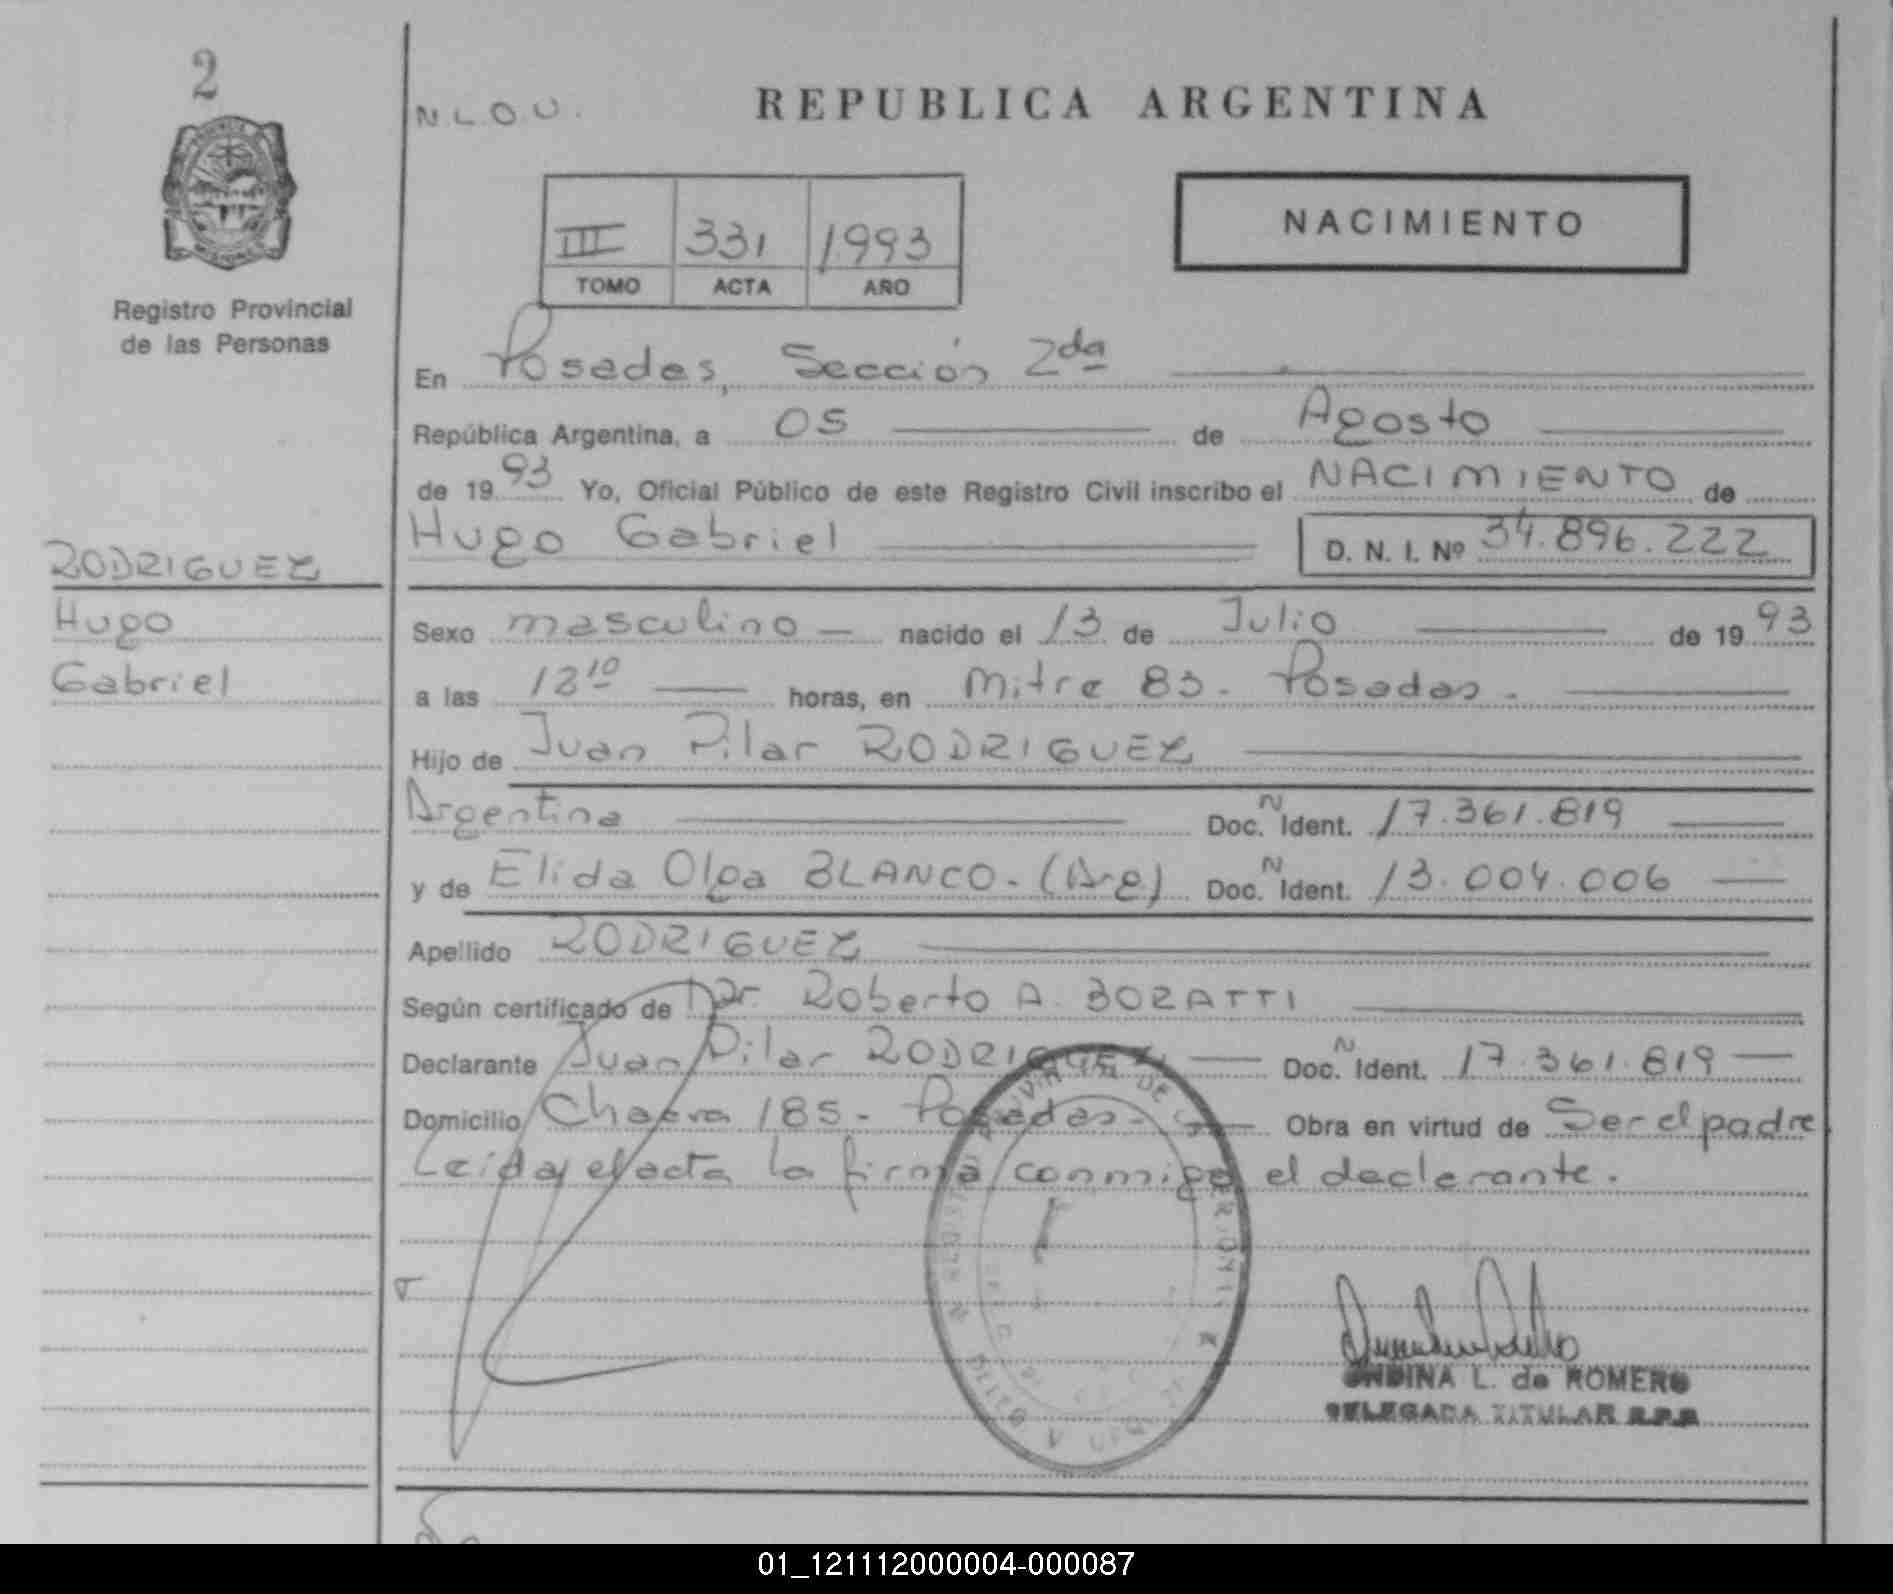 2
N.L.O.U.
REPUBLICA ARGENTINA
III 331 1993
TOMO ACTA AÑO
NACIMIENTO
Registro Provincial
de las Personas
En Posadas, Sección 2da
República Argentina, a 05 de Agosto
de 19 93 Yo, Oficial Público de este Registro Civil inscribo el NACIMIENTO de
Hugo Gabriel D. N. I. Nº 34.896.222
RODRIGUEZ
Hugo
Gabriel
Sexo masculino nacido el 13 de Julio de 19 93
a las horas, en Mitre 83. Posadas.
Hijo de Juan Pilar RODRIGUEZ
Argentina Doc. N Ident. 17.361.819
y de Elida Olga BLANCO. (Arg) Doc. N Ident. 13.004.006
Apellido RODRIGUEZ
Según certificado de Dr. Roberto A. BORATTI
Declarante Juan Pilar RODRIGUEZ Doc. N Ident. 17.361.819
Domicilio Chacra 185. Posadas. Obra en virtud de Ser el padre
Leida el acta la firma conmigo el declarante.
ONDINA L. de ROMERO
DELEGADA TITULAR R.P.P.
01_121112000004-000087